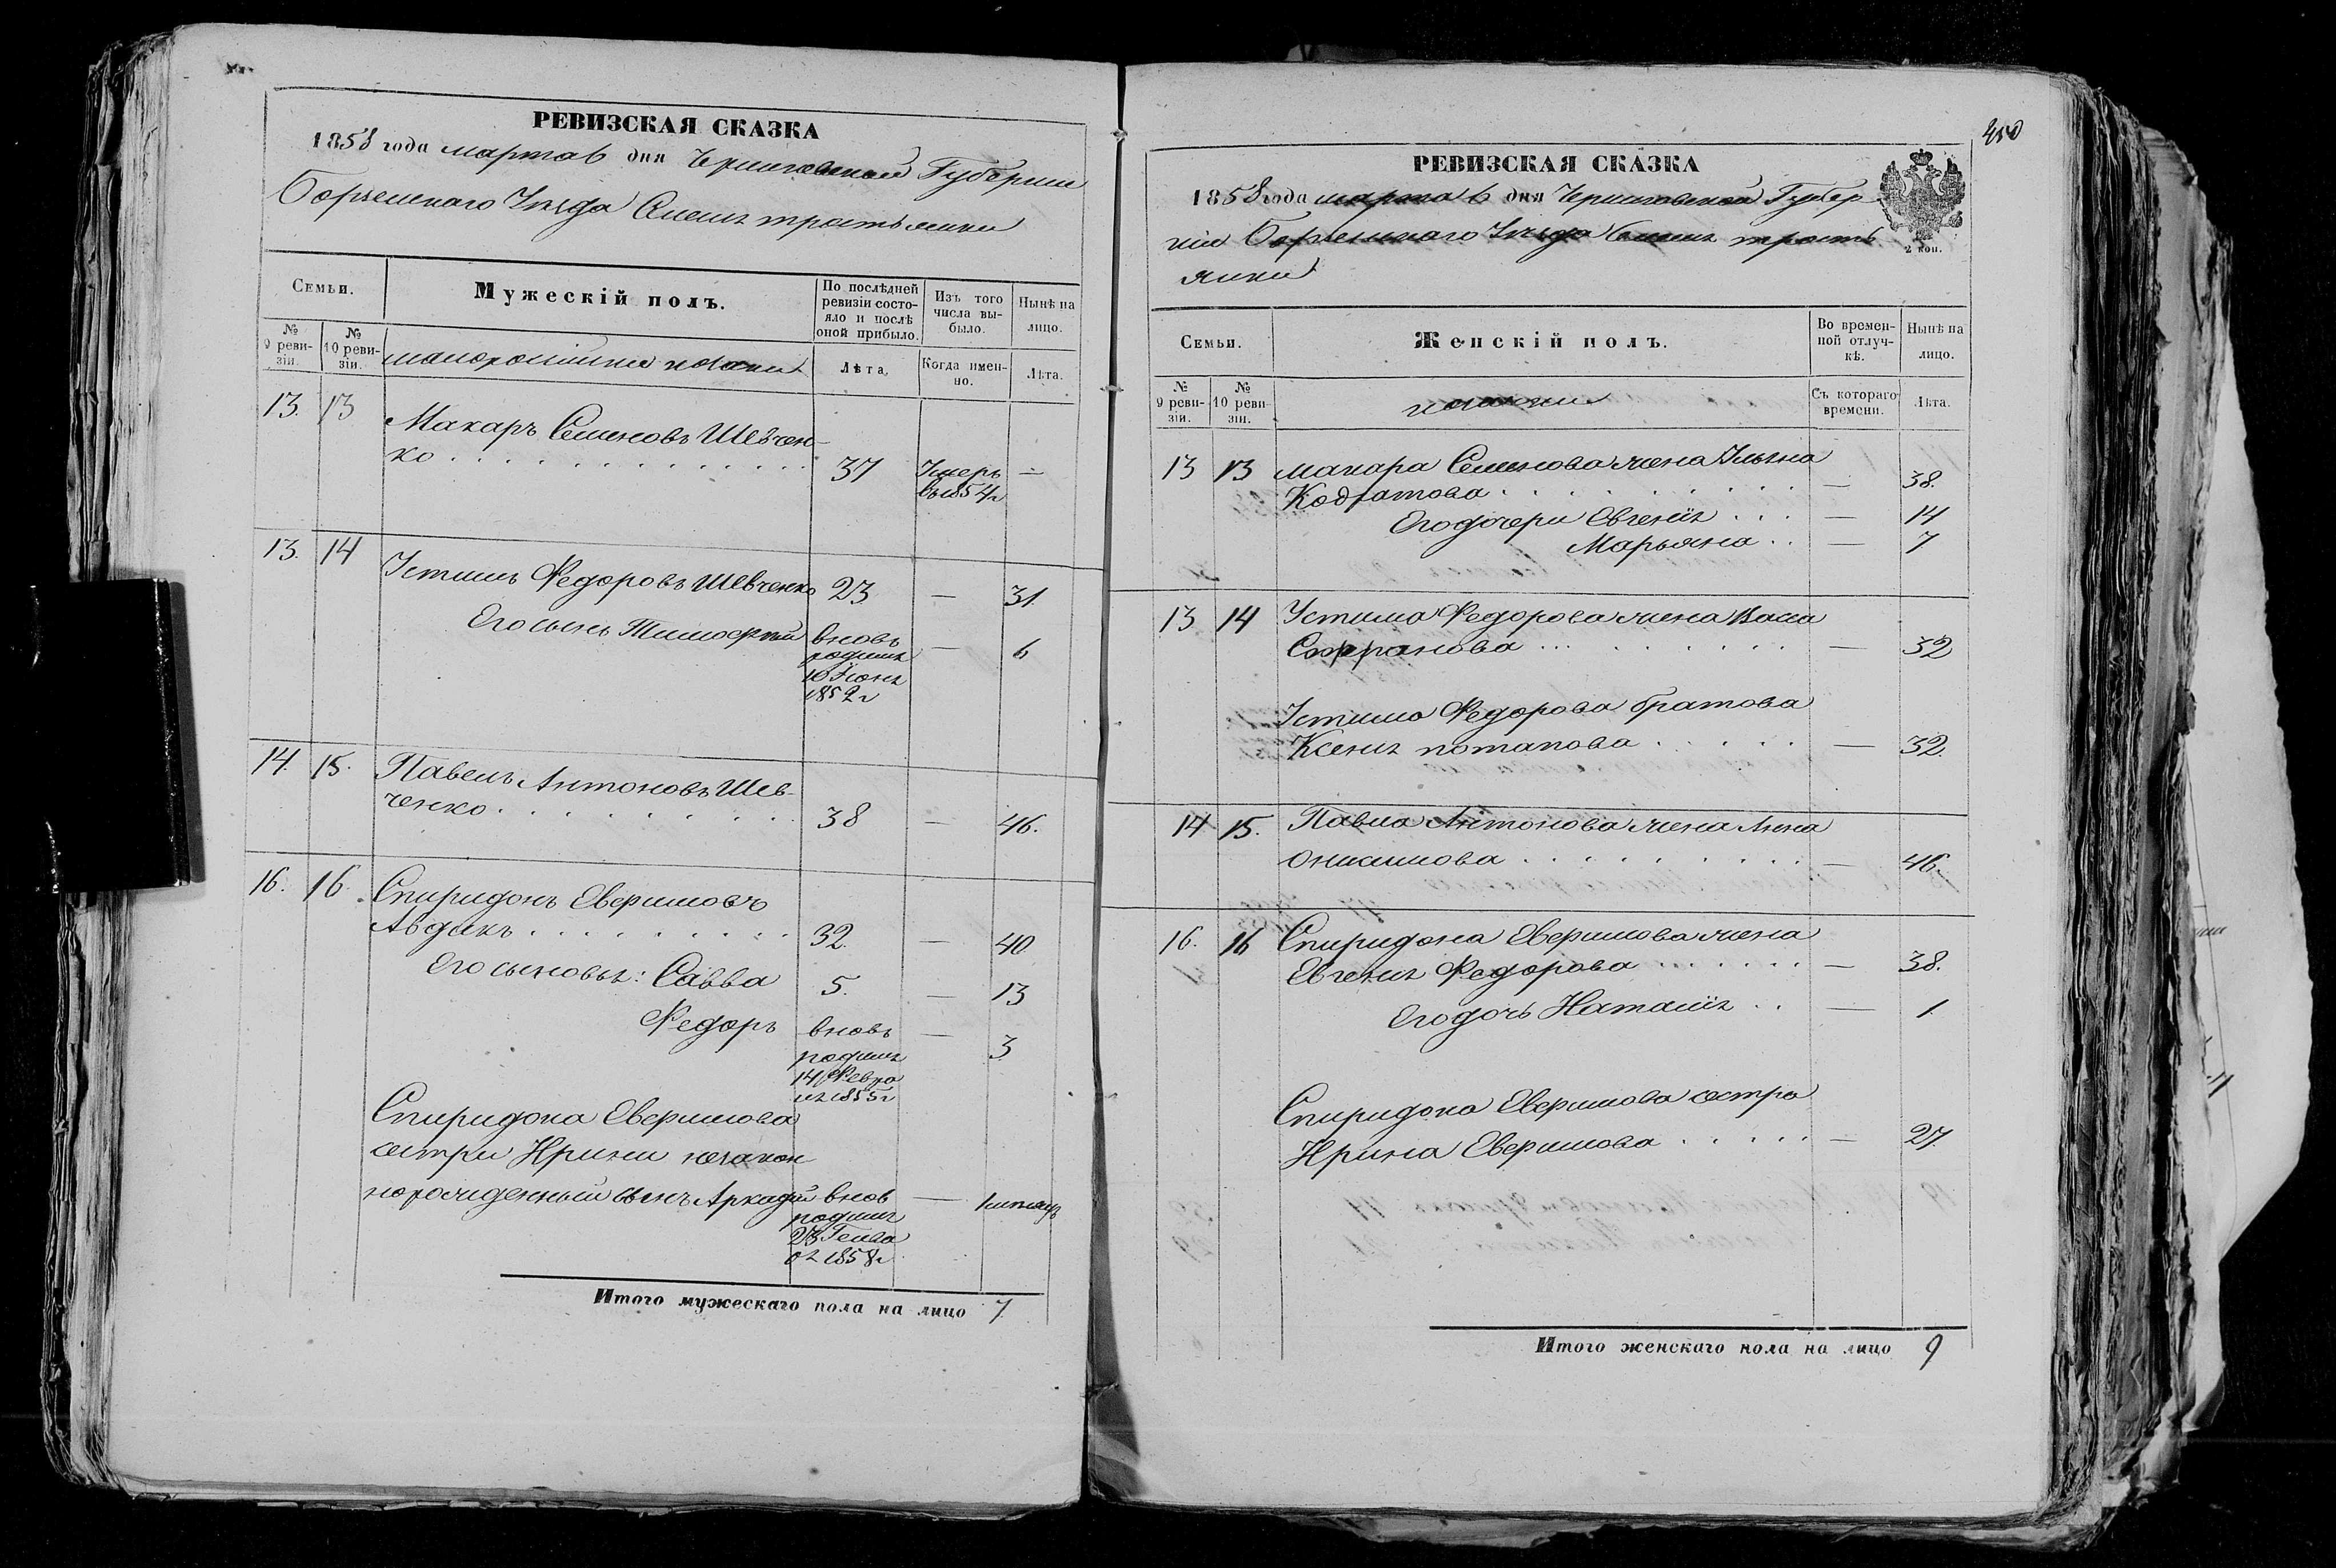 РЕВИЗСКАЯ СКАЗКА
1858 года марта 6 дня Черниговской Губернии
Борзенского Уѣзда Селенія тростянки
Семьи.
Мужескій полъ.
По послѣдней ревизіи состояло и послѣ оной прибыло.
Изъ того числа выбыло.
Нынѣ на лицо.
№ 9 ревизіи.
№ 10 ревизіи.
малоросійскіе козаки
Лѣта.
Когда именно.
Лѣта.
13. 13 Макаръ Семеновъ Шевчен-
ко . . . 37 Умеръ въ 1854 г —
13. 14 Устимъ Федоровъ Шевченко 23 — 31.
Его сынъ Тимофѣй вновь — 6
родился
10 Іюня
1852 г
14. 15. Павелъ Антоновъ Шев-
ченко . . . 38 — 46.
16. 16. Спиридонъ Евфимовъ
Авдакъ . . . 32. — 40
Его сыновья: Савва 5. — 13
Федоръ вновь — 3
родился
14 Февра
ля 1855 г
Спиридона Евфимова
сестри Ирини незакон
норожденный сынъ Аркадій вновь —
родился
23 Генва
ря 1858 г
Итого мужескаго пола на лицо 7
450
РЕВИЗСКАЯ СКАЗКА
1858 года марта 6 дня Черниговской Губер
ніи Борзенского Уѣзда Селенія трость
янки
2 коп.
Семьи.
Женскій полъ.
Во временной отлучкѣ.
Нынѣ на лицо.
№ 9 ревизіи.
№ 10 ревизіи.
козачки
Съ котораго времени.
Лѣта.
13 13 Макара Семенова жена Ульяна
Кодратова . . . — 38.
Его дочери Евгенія . . . — 14
Марьяна . . — 7
13 14 Устима Федорова жена Васса
Сафранова . . . — 32
Устима Федорова братова
Ксенія потапова . . . — 32.
14 15. Павла Антонова жена Анна
Онисимова . . . — 46.
16. 16 Спиридона Евфимова жена
Евгенія Федорова . . . — 38.
Его дочь Наталія . . — 1
Спиридона Евфимова сестра
Ирина Евфимова . . . — 27.
Итого женскаго пола на лицо 9